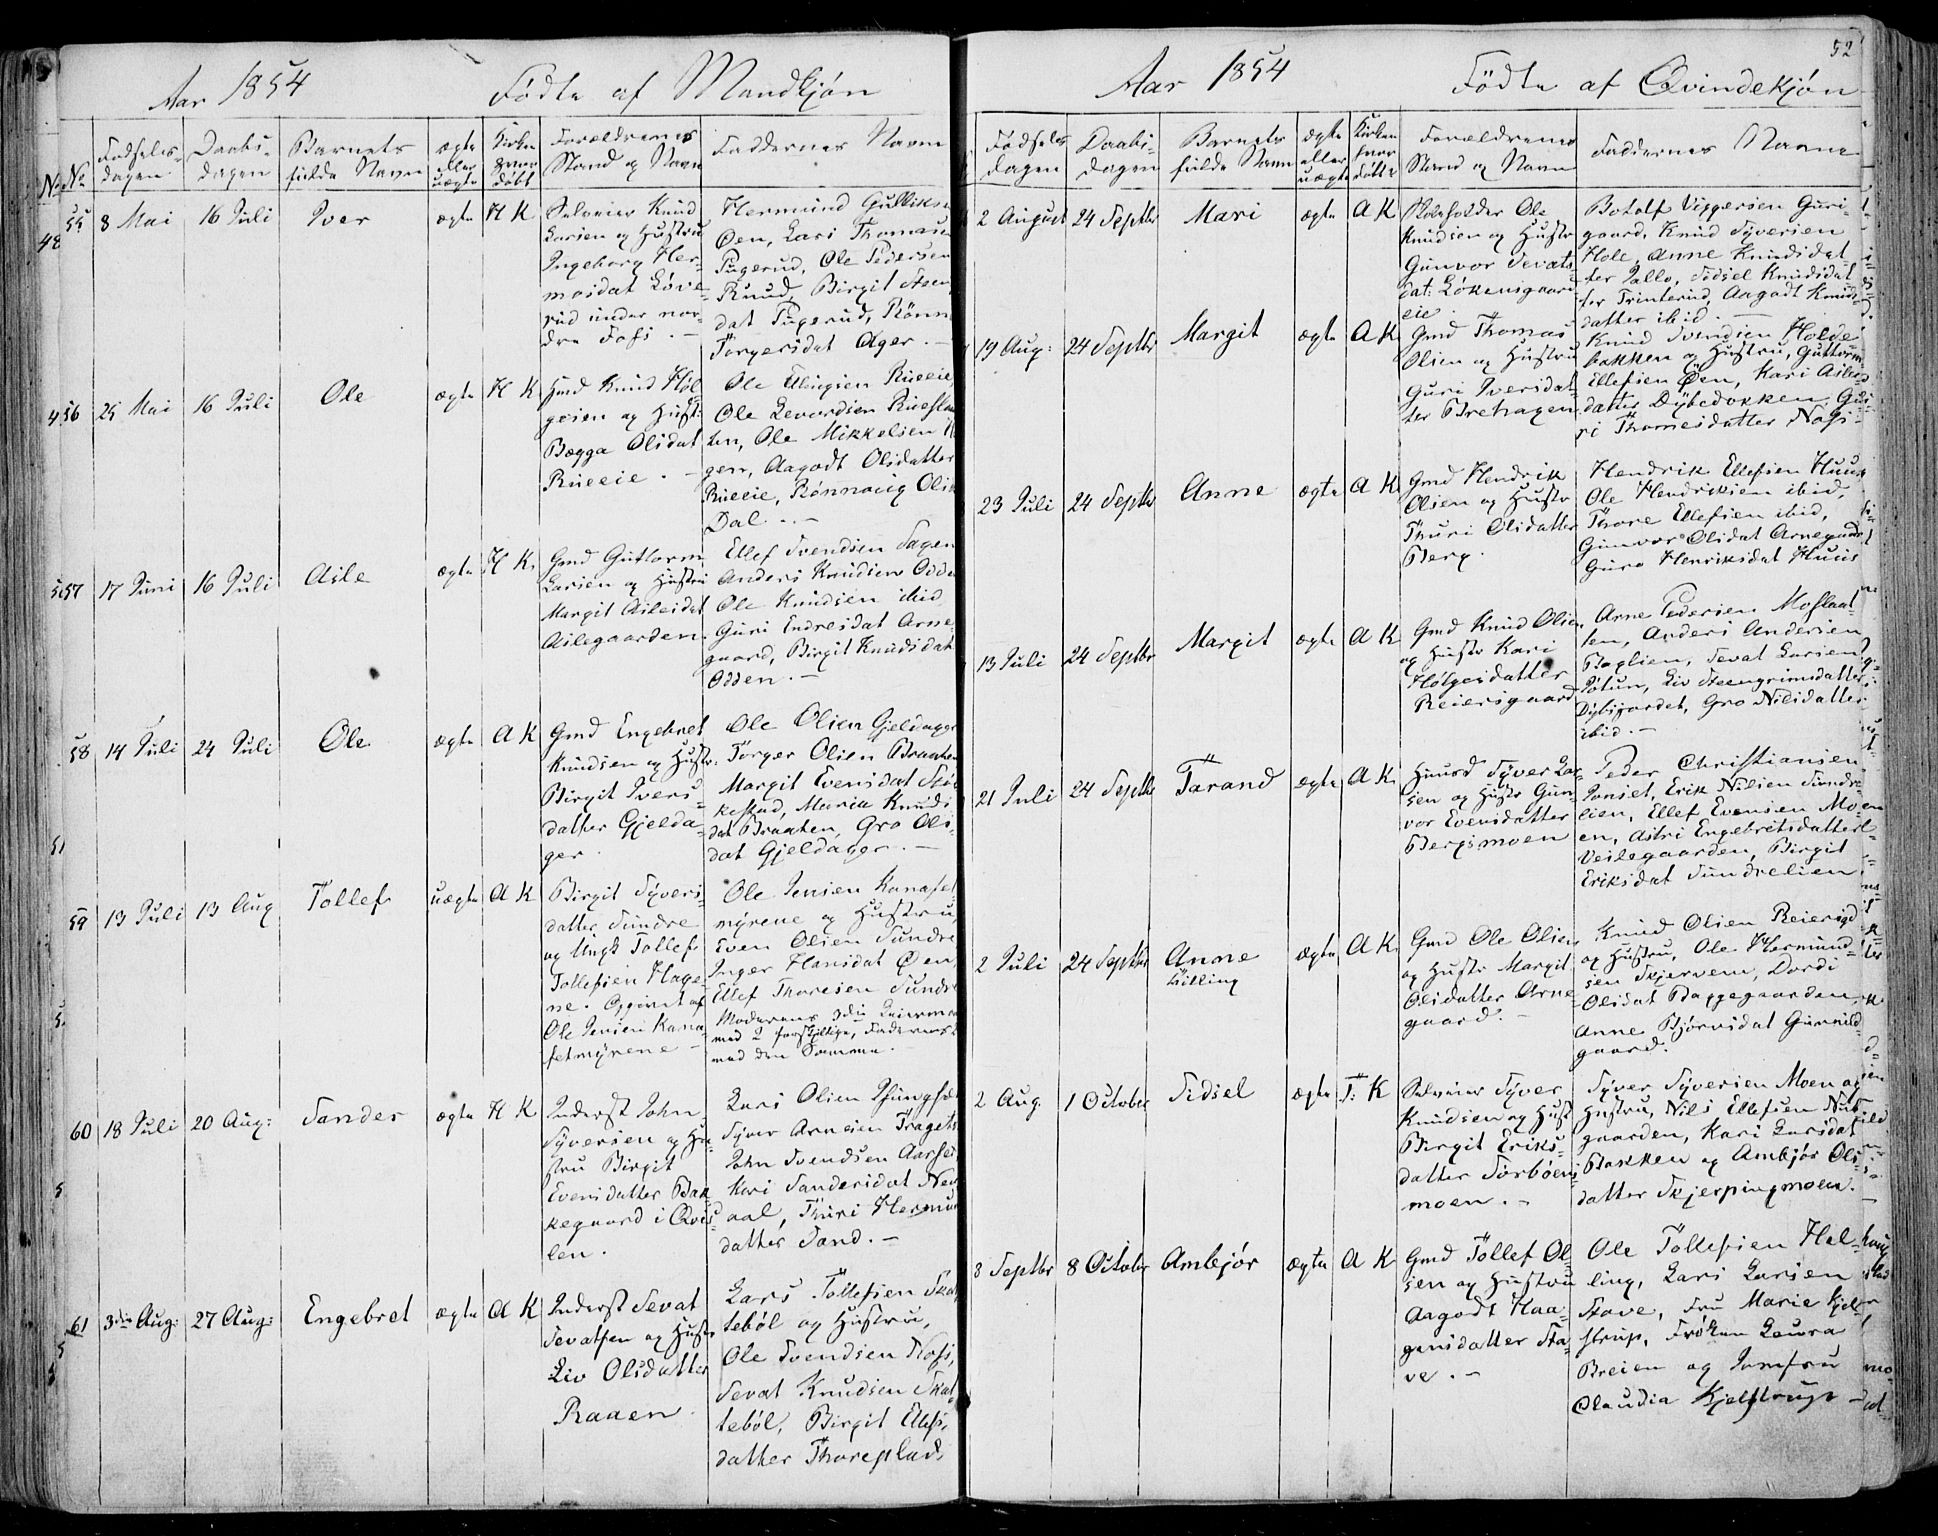 Aar 1854 Födte af Mandkjön
No No Fødsels-
dagen
Daabs-
dagen
Barnets
fulde Navn
ægte
eller
uægte
Kirken
hvor
døbt
Forældrenes
Stand og Navn
Faddernes Navn
48 55 8 Mai 16 Juli Iver ægte H K
Selveier Knud
Larsen og Hustru
Ingeborg Her-
mosdat Löve-
rud under nor-
dre Fosi. -
Hermund Gulliks
Öen, Lars Thomas
Tugerud, Ole Pedersen
Ruud, Birgit
dat Tugerud, Rönn
Torgersdat Ager. -
56 25 Mai 16 Juli Ole ægte H K
Gmd Knud Hol
geien og Hust:
Bægga Olsdat
Rueeie. -
Ole Ellingsen Rueeie,
Ole Levordsen Rueslaa
ten, Ole Mikkelsen
gen, Aagodt Olsdatter
Rueeie, Rönnaug Ols
Dal. -
57 17 Juni 16 Juli Asle ægte H K.
Gmd Guttorm
Larsen og Hustru
Margit Aslesdat
Aslegaarden.
Ellef Svendsen Sagen
Anders Knudsen Odde
Ole Knudsen ibid,
Guri Endresdat Arne-
gaard, Birgit Knudsdat
Odden. -
58 14 Juli 24 Juli Ole ægte A K
Gmd Engebret
Knudsen og Hustr:
Birgit Ivers-
datter Gjelda-
ger.
Ole Olsen Gjeldager
Torger Olsen Braaten
Margit Evensdat Stø
kestad, Maria Knuds
dat Braaten, Gro Ols-
dat Gjeldager. -
59 13 Juli 13 Aug Tollef uægte A K
Birgit Syvers-
datter Sundre
og Ungk Tollef
Tollefsen Hage-
ne. Opgivet af
Ole Jensen Kana-
fetmyrene -
Ole Jensen Kanafet
myrene og Hustru,
Even Olsen Sundre
Inger Hansdat Öen,
Ellef Thoresen Sundre
Moderens 3die Leiermaal
med 2 forskjellige, Faderens
med den Samme. -
60 18 Juli 20 Aug: Sander ægte H K
Inderst John
Syversen og Hu-
stru Birgit
Evensdatter Bak
kegaard i Qvis
len.
Lars Olsen
Syver Arnesen Traget
John Svendsen
Kari Sandersdat Nes
aal, Thuri Hermund
datter Sand. -
61 3die Aug: 27 Aug: Engebret ægte A K
Inderst Sevat
Sevatsen og Hustr
Liv Olsdatter
Raaen.
Lars Tollefsen Skat
teböl og Hustru,
Ole Svendsen Fosi,
Sevat Knudsen Skat
teböl, Birgit Ellefs
datter Thoreplads
52
Aar 1854 Födte af Qvindekjön
Fødsels
dagen
Daabs-
dagen
Barnets
fulde Navn
ægte
eller
uægte
Kirken
hvor
döbte
Forældrenes
Stand og Navn
Faddernes Navne
2 August 24 Septbr Mari ægte A K
Skoleholder Ole
Knudsen og Hustr
Gunvor Sevats-
dat: Lökensgaard-
eie.
Botolf Viggersen Guri-
gaard, Knud Syversen
Hole, Anne Knudsdat-
ter Pallo, Sidsel Knudsdat
ter Trinterud, Aagodt Knuds
datter ibid. -
19 Aug: 24 Septbr Margit ægte A K
Gmd Thomas
Olsen og Hustru
Guri Iversdat-
ter Brehagen
Knud Svendsen Holde
bakken og Hustru, Guttorm
Ellefsen Öen, Kari Asles
datter Dybedokken, Gu-
ri Thomesdatter
23 Juli 24 Septbr Anne ægte A K
Gmd Hendrik
Olsen og Hustr
Thuri Olsdatter
Berg.
Hendrik Ellefsen Huus
Ole Hendriksen ibid,
Thore Ellefsen ibid,
Gunvor Olsdat Arnegaard
Guro Henriksdat Huus
13 Juli 24 Septbr Margit ægte A K
Gmd Knud Olsen
og Hustr Kari
Holgesdatter
Reiersgaard
Arne Pedersen Moslaat-
ten, Anders Andersen
Baglien, Sevat Larsen
Jötun, Liv Steengrimsdatter
Dybsjordet, Gro Nilsdatter
ibid. -
21 Juli 24 Septbr Tarand ægte A K
Huusd Syver Lar-
sen og Hustr Gun-
vor Evensdatter
Bergsmoen
Peder Christiansen
Jonset, Erik Nilsen Sundre-
lien, Ellef Evensen Moen
en, Astri Engebretsdatter
Veslegaarden, Birgit
Eriksdat Sundrelien
2 Juli 24 Septbr Anne
tvilling ægte A K
Gmd Ole Olsen
og Hustr Margit
Olsdatter Arne-
gaard -
Knud Olsen Reiersgd
og Hustru, Ole Hermund-
sen Skjervem, Dordi
Olsdat Baggegaarden,
Anne Björnsdat Gunnild
gaard.
2 Aug. 1 October Sidsel ægte T: K
Selveier Syver
Knudsen og Hust
Birgit Eriks-
datter Sörböens-
moen. -
Syver Syversen Moen og
Hustru, Nils Ellefsen Nub
gaarden, Kari Larsdat
Bakken og Ambjör Ols-
datter Skjerpingmoen.
3 Septbr 8 October Ambjör ægte A K
Gmd Tollef Ol-
sen og Hustru
Aagodt Haa-
gensdatter Sta-
ve. -
Ole Tollefsen Hel-
ling, Lars Larsen
Stave, Fru Marie Kjel-
strup, Fröken Laura
Breien og Jomfru
Claudia Kjelstrup -